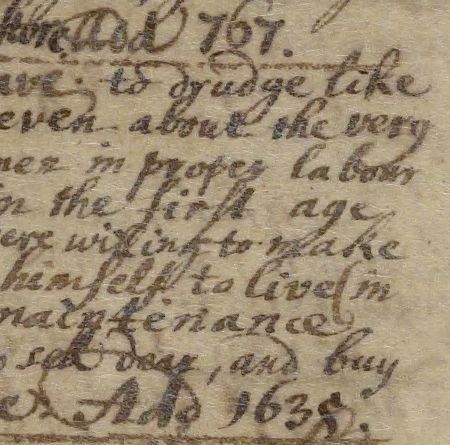 Add 767.
ave. to drudge like
even about the very
men in proper labour
in the first age
ere willing to make
himself to live in
maintenance
sell dear, and buy
Add 1638.